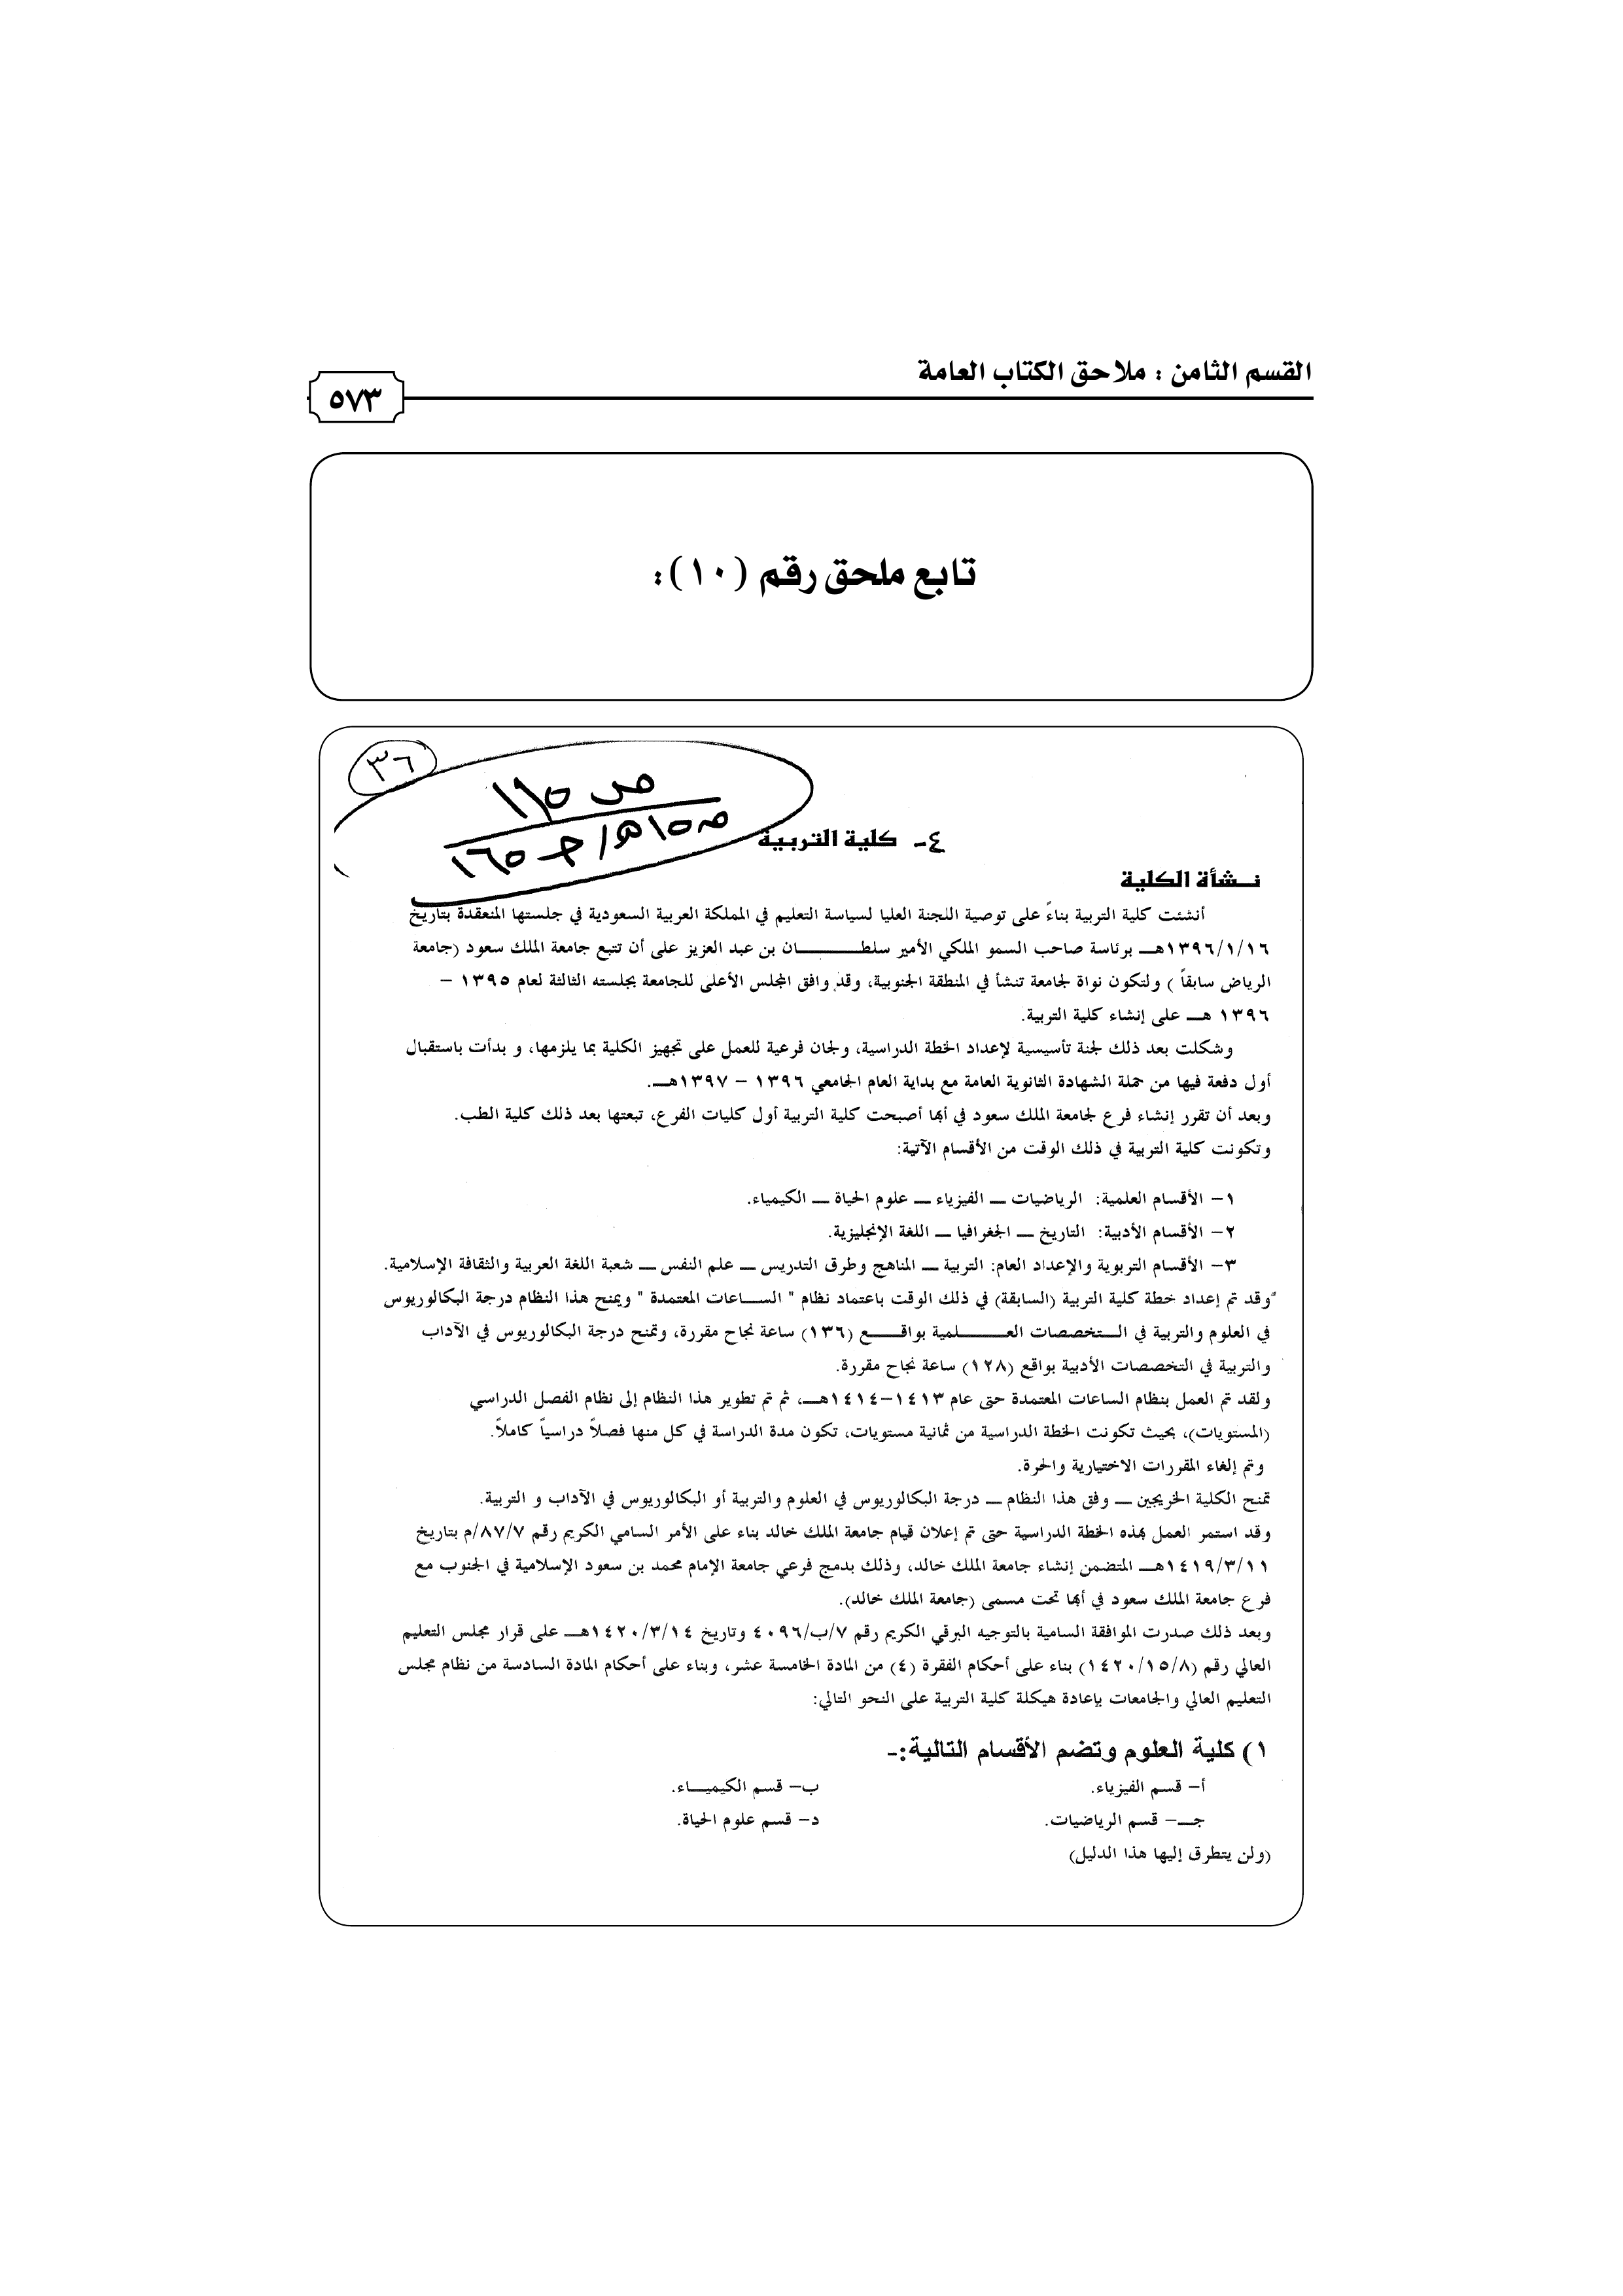 القسم الثامن : ملاحق الكتاب العامة
٥٧٣
تابع ملحق رقم (١٠) :
٣٦
ص ١٩٥
٤- كلية التربية
نـشأة الكلية
أنشئت كلية التربية بناءً على توصية اللجنة العليا لسياسة التعليم في المملكة العربية السعودية في جلستها المنعقدة بتاريخ
١٣٩٦/١/١٦هـ برئاسة صاحب السمو الملكي الأمير سلطـــــان بن عبد العزيز على أن تتبع جامعة الملك سعود (جامعة
الرياض سابقاً ) ولتكون نواة لجامعة تنشأ في المنطقة الجنوبية، وقد وافق المجلس الأعلى للجامعة بجلسته الثالثة لعام ١٣٩٥ –
١٣٩٦ هـ على إنشاء كلية التربية.
وشكلت بعد ذلك لجنة تأسيسية لإعداد الخطة الدراسية، ولجان فرعية للعمل على تجهيز الكلية بما يلزمها، و بدأت باستقبال
أول دفعة فيها من حملة الشهادة الثانوية العامة مع بداية العام الجامعي ١٣٩٦ – ١٣٩٧هـ.
وبعد أن تقرر إنشاء فرع لجامعة الملك سعود في أبها أصبحت كلية التربية أول كليات الفرع، تبعتها بعد ذلك كلية الطب.
وتكونت كلية التربية في ذلك الوقت من الأقسام الآتية:
١– الأقسام العلمية: الرياضيات ــ الفيزياء ــ علوم الحياة ــ الكيمياء.
٢– الأقسام الأدبية: التاريخ ــ الجغرافيا ــ اللغة الإنجليزية.
٣– الأقسام التربوية والإعداد العام: التربية ــ المناهج وطرق التدريس ــ علم النفس ــ شعبة اللغة العربية والثقافة الإسلامية.
وقد تم إعداد خطة كلية التربية (السابقة) في ذلك الوقت باعتماد نظام " الســاعات المعتمدة " ويمنح هذا النظام درجة البكالوريوس
في العلوم والتربية في الــتخصصات العــــلمية بواقــــع (١٣٦) ساعة نجاح مقررة، وتمنح درجة البكالوريوس في الآداب
والتربية في التخصصات الأدبية بواقع (١٢٨) ساعة نجاح مقررة.
ولقد تم العمل بنظام الساعات المعتمدة حتى عام ١٤١٣–١٤١٤هـ، ثم تم تطوير هذا النظام إلى نظام الفصل الدراسي
(المستويات)، بحيث تكونت الخطة الدراسية من ثمانية مستويات، تكون مدة الدراسة في كل منها فصلاً دراسياً كاملاً.
وتم إلغاء المقررات الاختيارية والحرة.
تمنح الكلية الخريجين ــ وفق هذا النظام ــ درجة البكالوريوس في العلوم والتربية أو البكالوريوس في الآداب و التربية.
وقد استمر العمل بهذه الخطة الدراسية حتى تم إعلان قيام جامعة الملك خالد بناء على الأمر السامي الكريم رقم ٨٧/٧/م بتاريخ
١٤١٩/٣/١١هـ المتضمن إنشاء جامعة الملك خالد، وذلك بدمج فرعي جامعة الإمام محمد بن سعود الإسلامية في الجنوب مع
فرع جامعة الملك سعود في أبها تحت مسمى (جامعة الملك خالد).
وبعد ذلك صدرت الموافقة السامية بالتوجيه البرقي الكريم رقم ٧/ب/٤٠٩٦ وتاريخ ١٤٢٠/٣/١٤هـ على قرار مجلس التعليم
العالي رقم (١٤٢٠/١٥/٨) بناء على أحكام الفقرة (٤) من المادة الخامسة عشر، وبناء على أحكام المادة السادسة من نظام مجلس
التعليم العالي والجامعات بإعادة هيكلة كلية التربية على النحو التالي:
١) كلية العلوم وتضم الأقسام التالية:-
أ– قسم الفيزياء. ب– قسم الكيميــاء.
جــ– قسم الرياضيات. د– قسم علوم الحياة.
(ولن يتطرق إليها هذا الدليل)